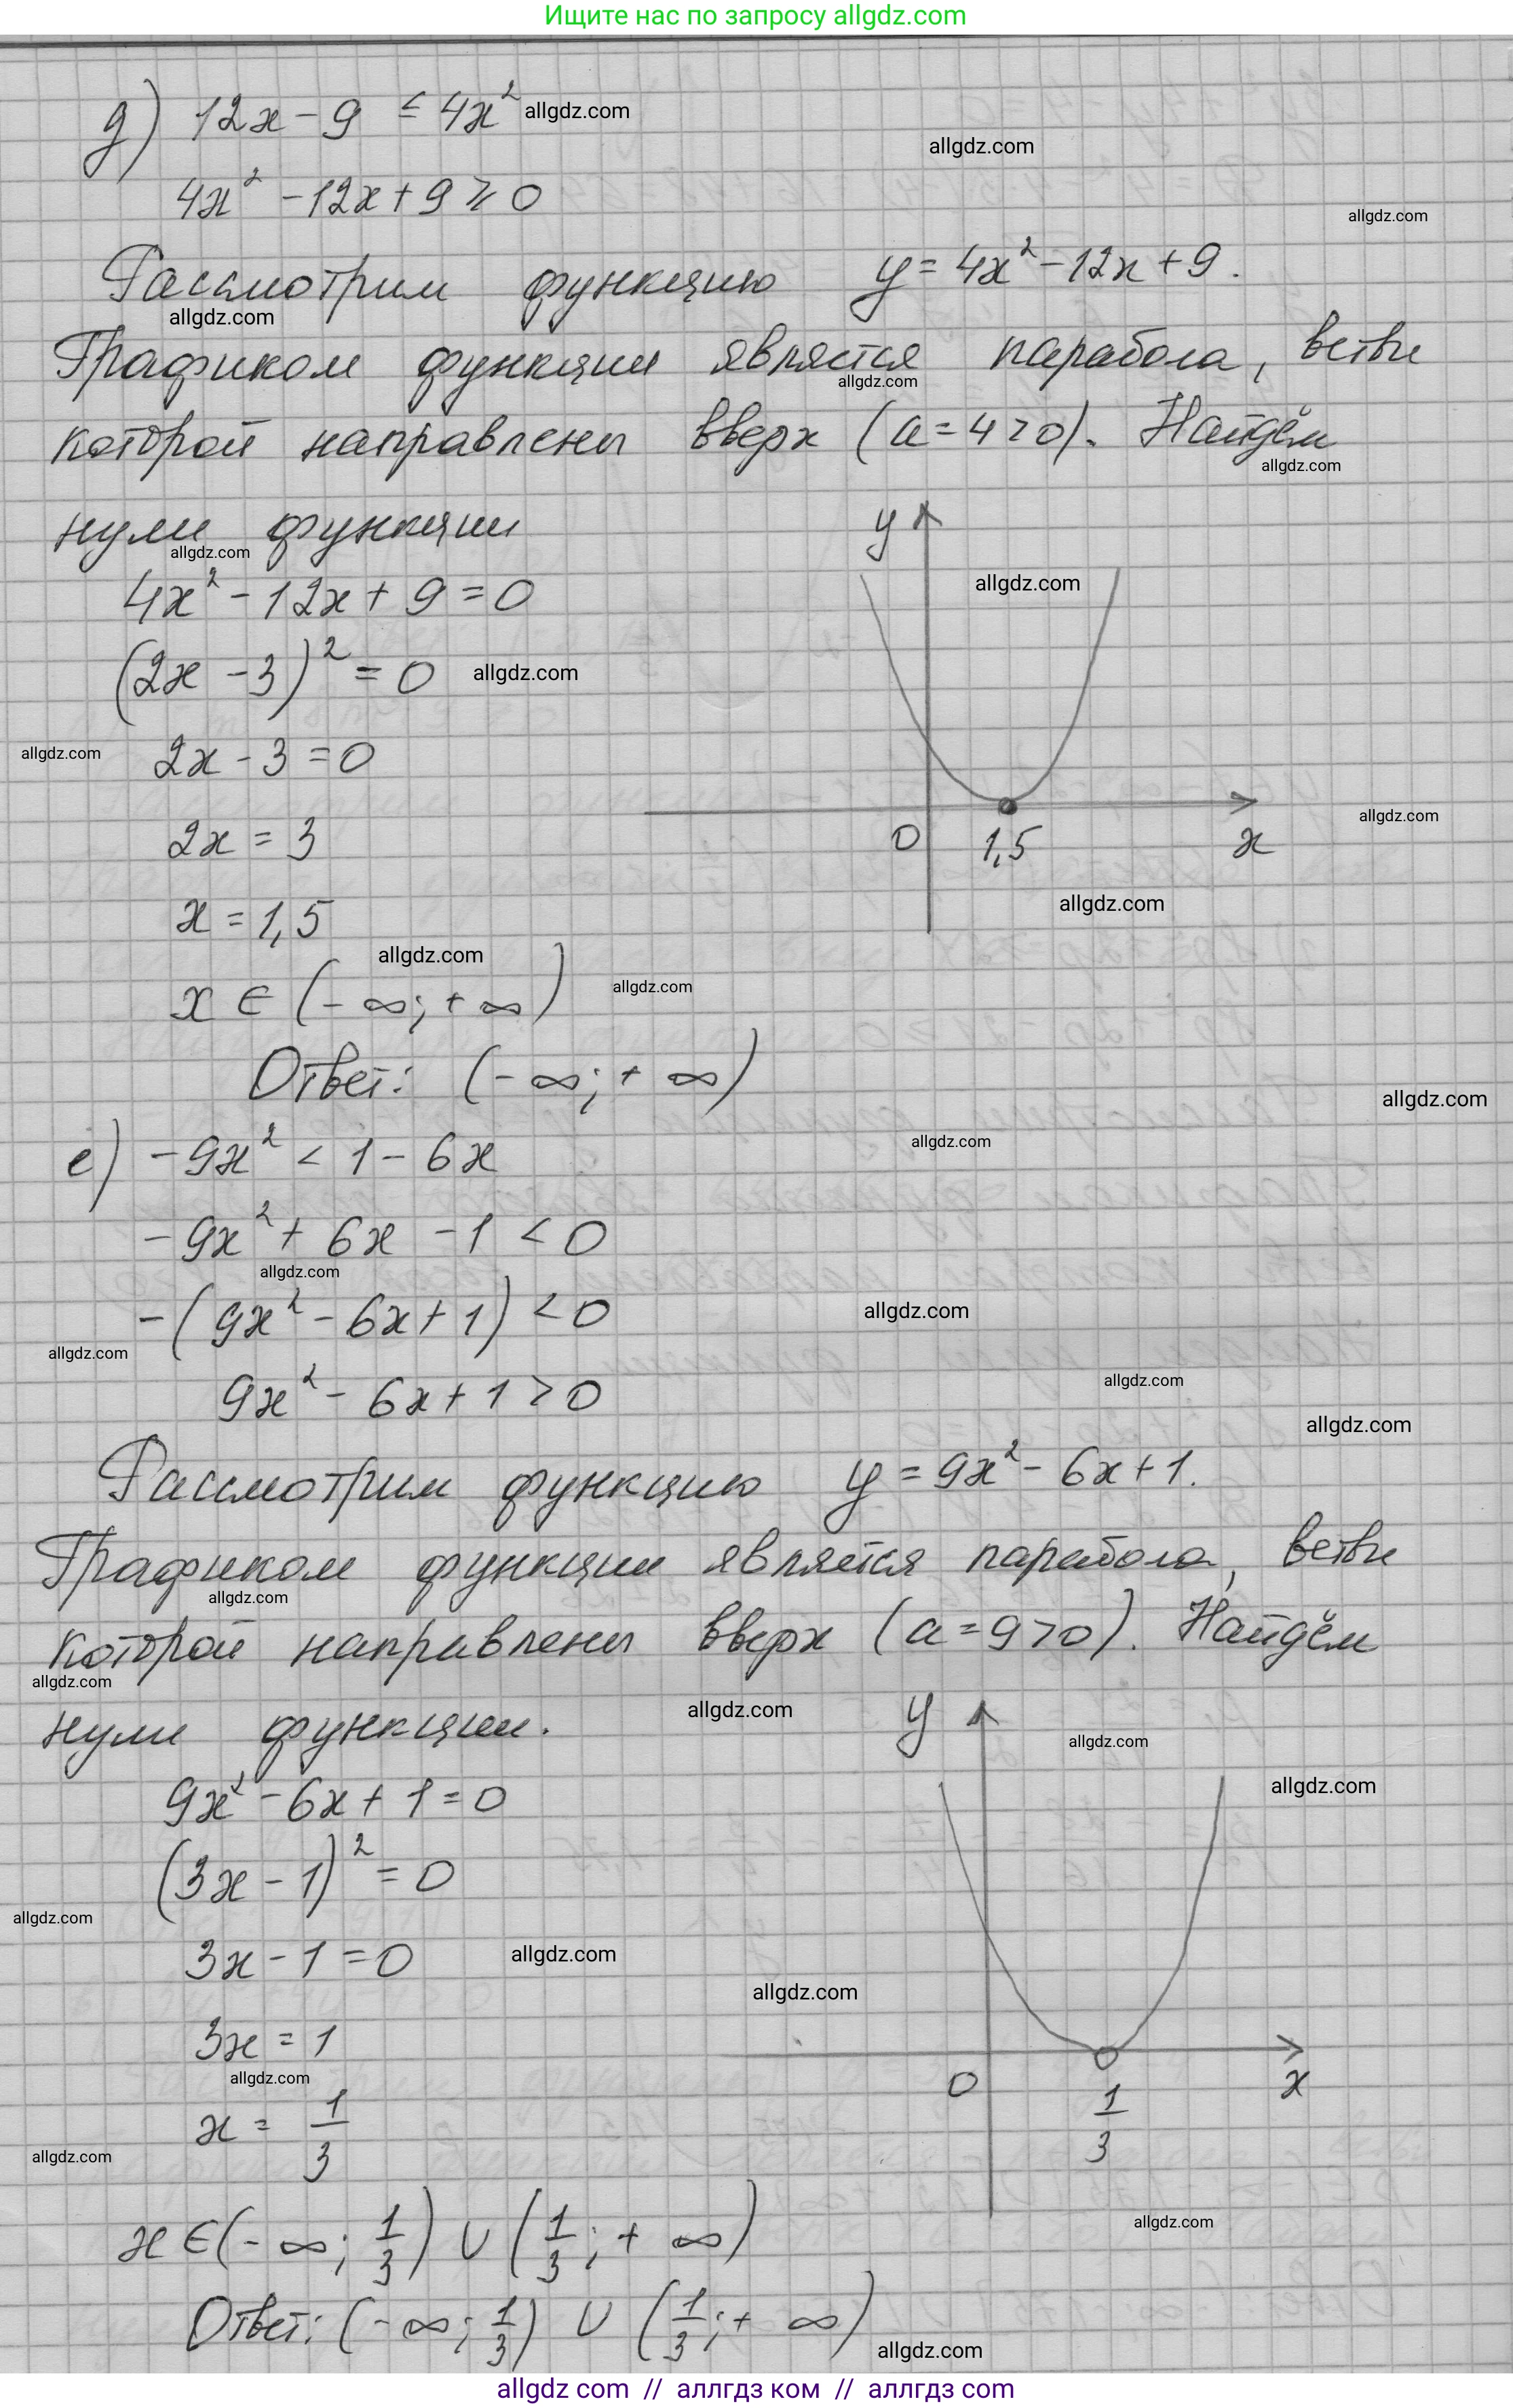 Ищите нас по запросу allgdz.com
д) 12x - 9 ≤ 4x² allgdz.com
allgdz.com
4x² - 12x + 9 ≥ 0
allgdz.com
Рассмотрим функцию y = 4x² - 12x + 9.
allgdz.com
Графиком функции является парабола, ветви
allgdz.com
которой направлены вверх (a = 4 > 0). Найдём
allgdz.com
нули функции
allgdz.com
y
4x² - 12x + 9 = 0
allgdz.com
(2x - 3)² = 0 allgdz.com
allgdz.com
2x - 3 = 0
2x = 3
0 1,5 x
allgdz.com
x = 1,5
allgdz.com
allgdz.com
x ∈ (-∞; +∞) allgdz.com
Ответ: (-∞; +∞)
allgdz.com
allgdz.com
е) -9x² < 1 - 6x
-9x² + 6x - 1 < 0
allgdz.com
-(9x² - 6x + 1) < 0 allgdz.com
allgdz.com
9x² - 6x + 1 > 0
allgdz.com
allgdz.com
Рассмотрим функцию y = 9x² - 6x + 1.
Графиком функции является парабола, ветви
allgdz.com
которой направлены вверх (a = 9 > 0). Найдём
allgdz.com
allgdz.com
нули функции.
y
allgdz.com
9x² - 6x + 1 = 0
allgdz.com
(3x - 1)² = 0
allgdz.com
3x - 1 = 0 allgdz.com
allgdz.com
3x = 1
allgdz.com
0 1/3 x
x = 1/3
allgdz.com
allgdz.com
x ∈ (-∞; 1/3) ∪ (1/3; +∞)
Ответ: (-∞; 1/3) ∪ (1/3; +∞)
allgdz.com
allgdz com // аллгдз ком // аллгдз com